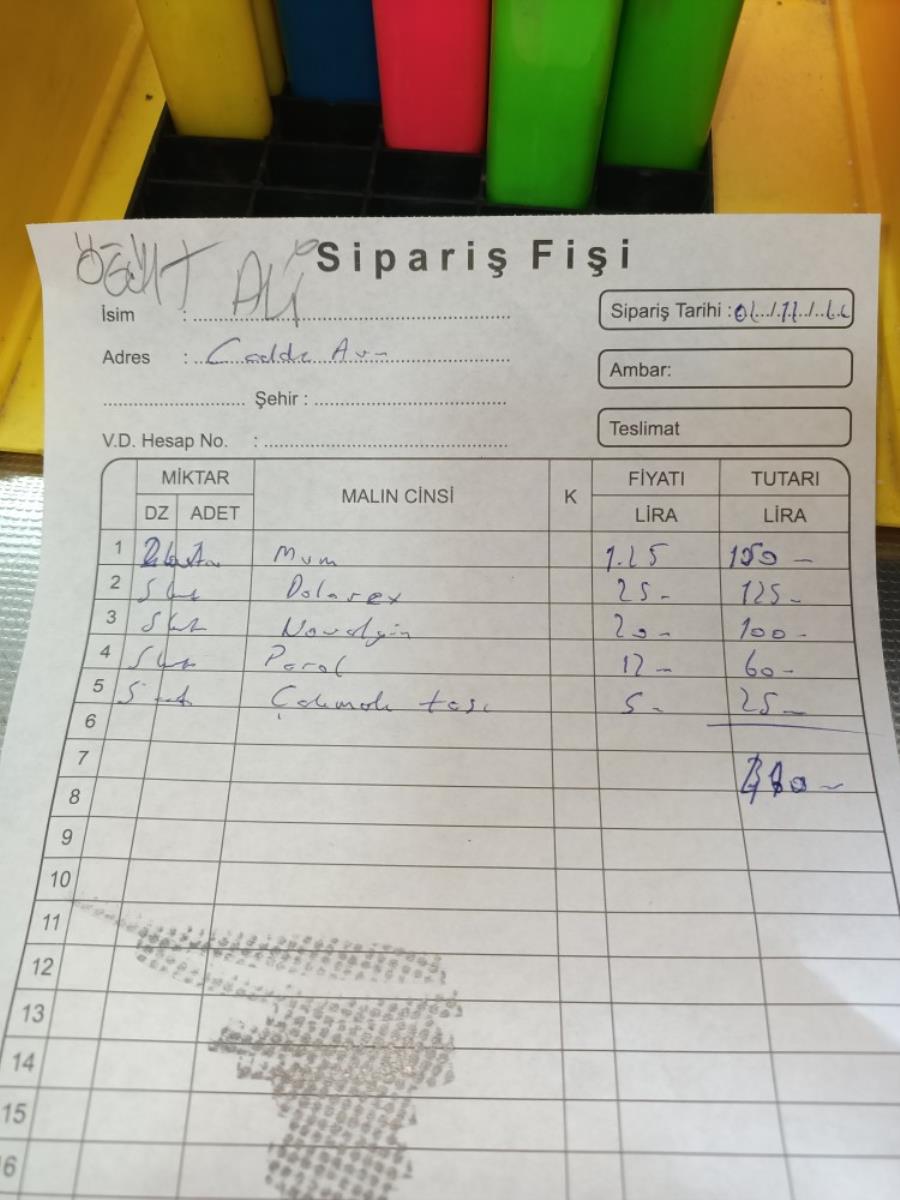 Sipariş Fişi
ALİ
İsim : Sipariş Tarihi :
Adres : Cadde Avm
Ambar:
Şehir :
Teslimat
V.D. Hesap No. :
MİKTAR MALIN CİNSİ K FİYATI TUTARI
DZ ADET LİRA LİRA
1 Mum 1.25 150 -
2 5 Dolorex 25 - 125 -
3 5 Novalgin 20 - 100 -
4 5 Parol 12 - 60 -
5 5 Çakmak taşı 5 - 25 -
6
7
8
9
10
11
12
13
14
15
16